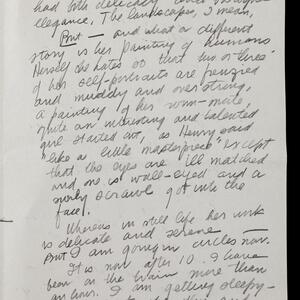 had both delicacy
elegance, The landscapes, I mean,
But — and what a different
story is her painting of humans
Herself she hates so that two or three
of her self-portraits are frenzied
and muddy and overstrong,
a painting of her room-mate,
quite an interesting and talented
girl started out, as Henry said
"like a little masterpiece" except
that the eyes are ill matched
and one is wall-eyed and a
surly scrawl got into the
face.
Whereas in still life her work
is delicate and serene —
But I am going in circles now.
It is now after 10. I have
been on the train more than
an hour. I am getting sleepy-